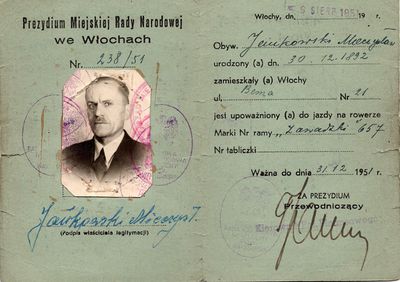 Prezydium Miejskiej Rady Narodowej
we Włochach
Nr. 238/51
(Podpis właściciela legitymacji)
Włochy, dn. 9 SIERP. 1951 19 r.
Obyw. Jankowski Mieczysław
urodzony (a) dn. 30.12.1892
zamieszkały (a) Włochy
ul. Bema Nr 21
jest upoważniony (a) do jazdy na rowerze
Marki Nr ramy "Zawadzki" 657
Nr tabliczki
Ważna do dnia 31.12 1951 r.
ZA PREZYDIUM
Przewodniczący